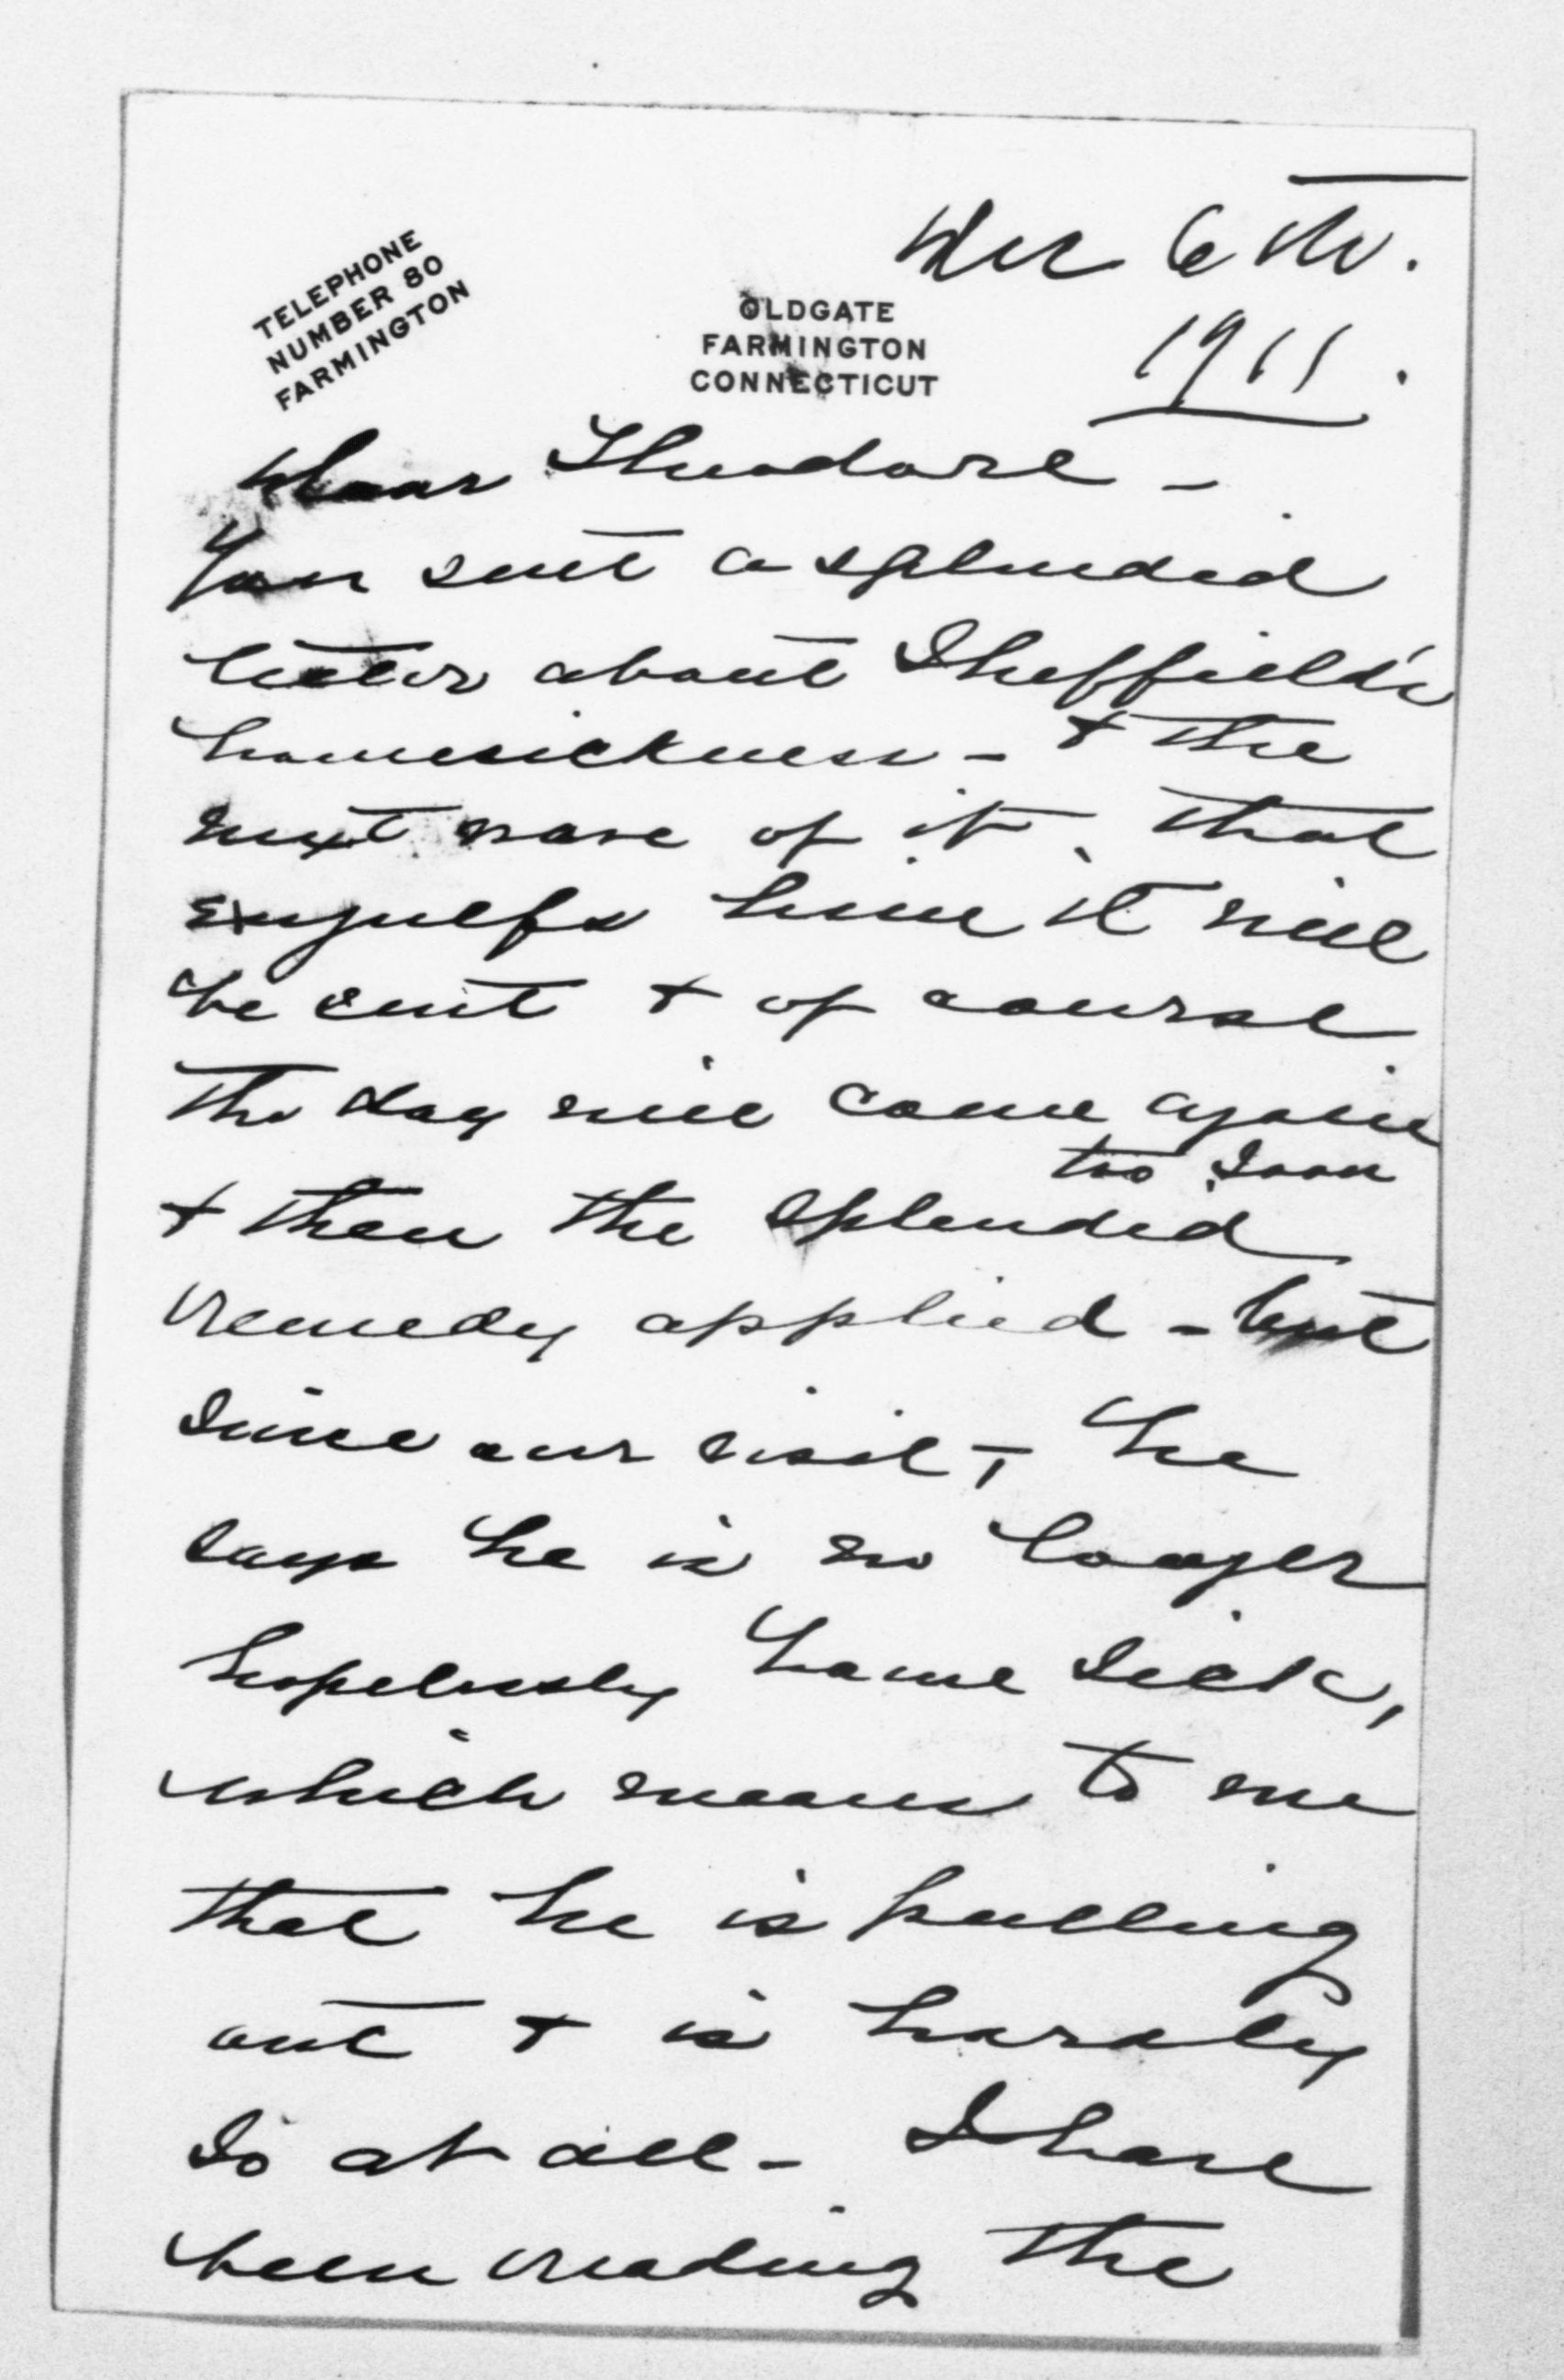 Dec 6th.
TELEPHONE
NUMBER 80
FARMINGTON
OLDGATE
FARMINGTON
CONNECTICUT
1911.
Dear Theodore -
You sent a splendid
letter about Sheffield's
homesickness - & the
next wave of it, that
engulfs him it will
be sent & of course
the day will come again
too soon
& then the splendid
remedy applied - but
since our visit, he
says he is no longer
hopelessly home sick,
which means to me
that he is pulling
out & is hardly
so at all - I have
been reading the